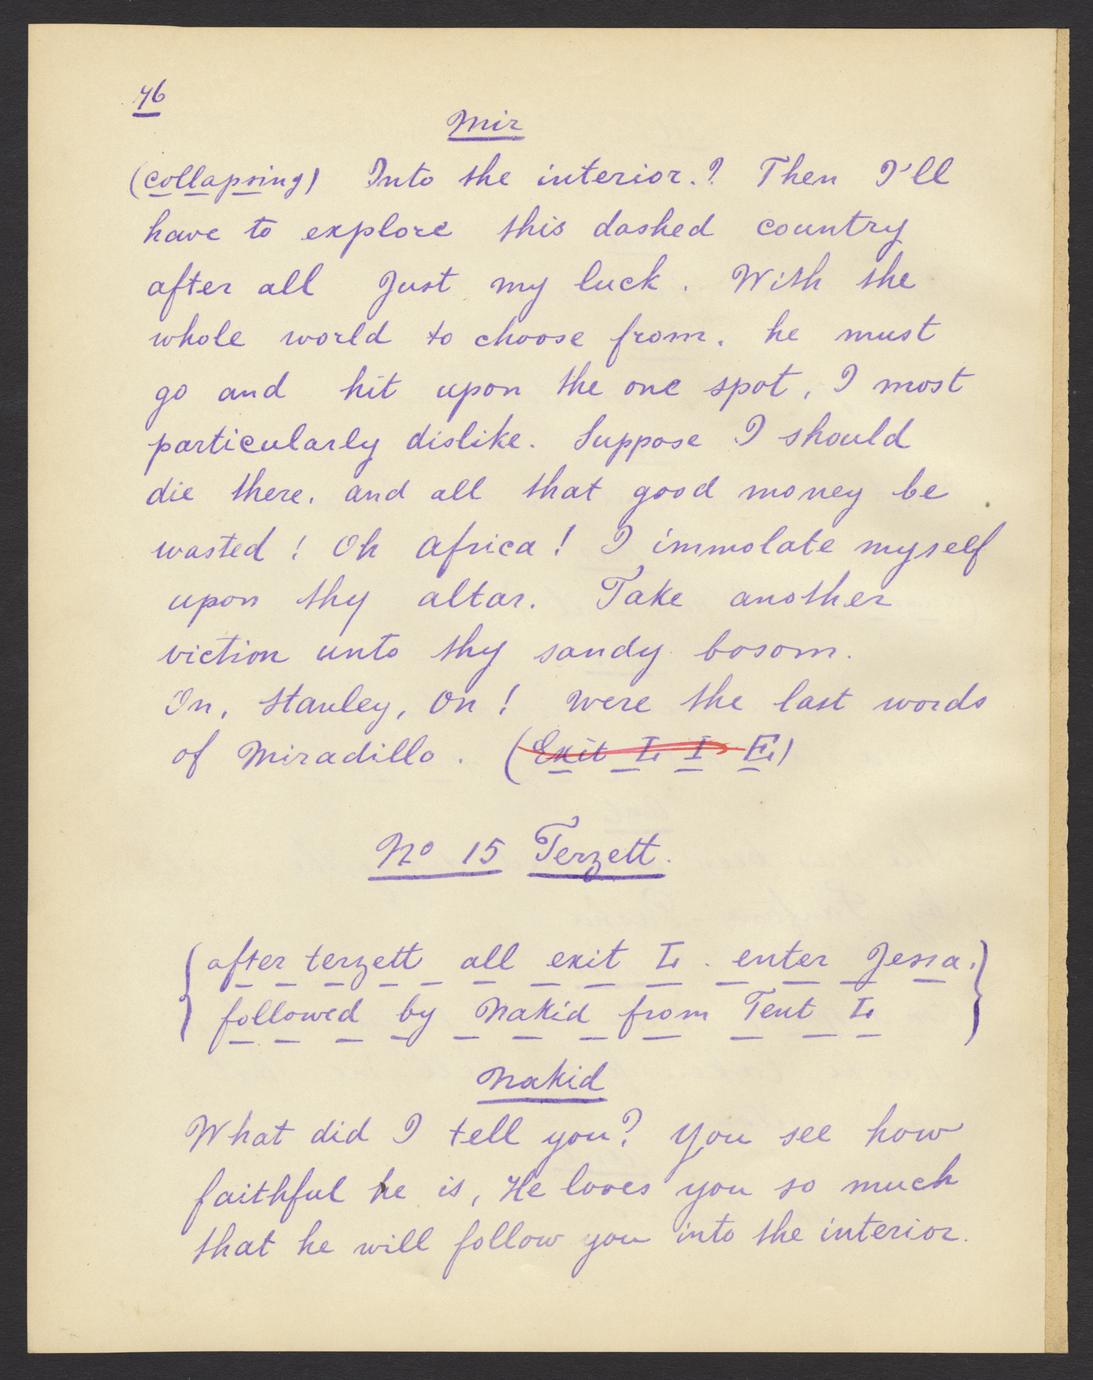 76
Mir
(collapsing) Into the interior.? Then I'll
have to explore this dashed country
after all Just my luck. With the
whole world to choose from, he must
go and hit upon the one spot, I most
particularly dislike. Suppose I should
die there, and all that good money be
wasted! Oh Africa! I immolate myself
upon thy altar. Take another
viction unto thy sandy bosom.
On, Stanley, On! Were the last words
of Miradillo. (Exit L I E)
No 15 Terzett.
{after terzett all exit L. enter Jessa,}
followed by Nakid from Tent L
Nakid
What did I tell you? You see how
faithful he is, He loves you so much
that he will follow you into the interior.